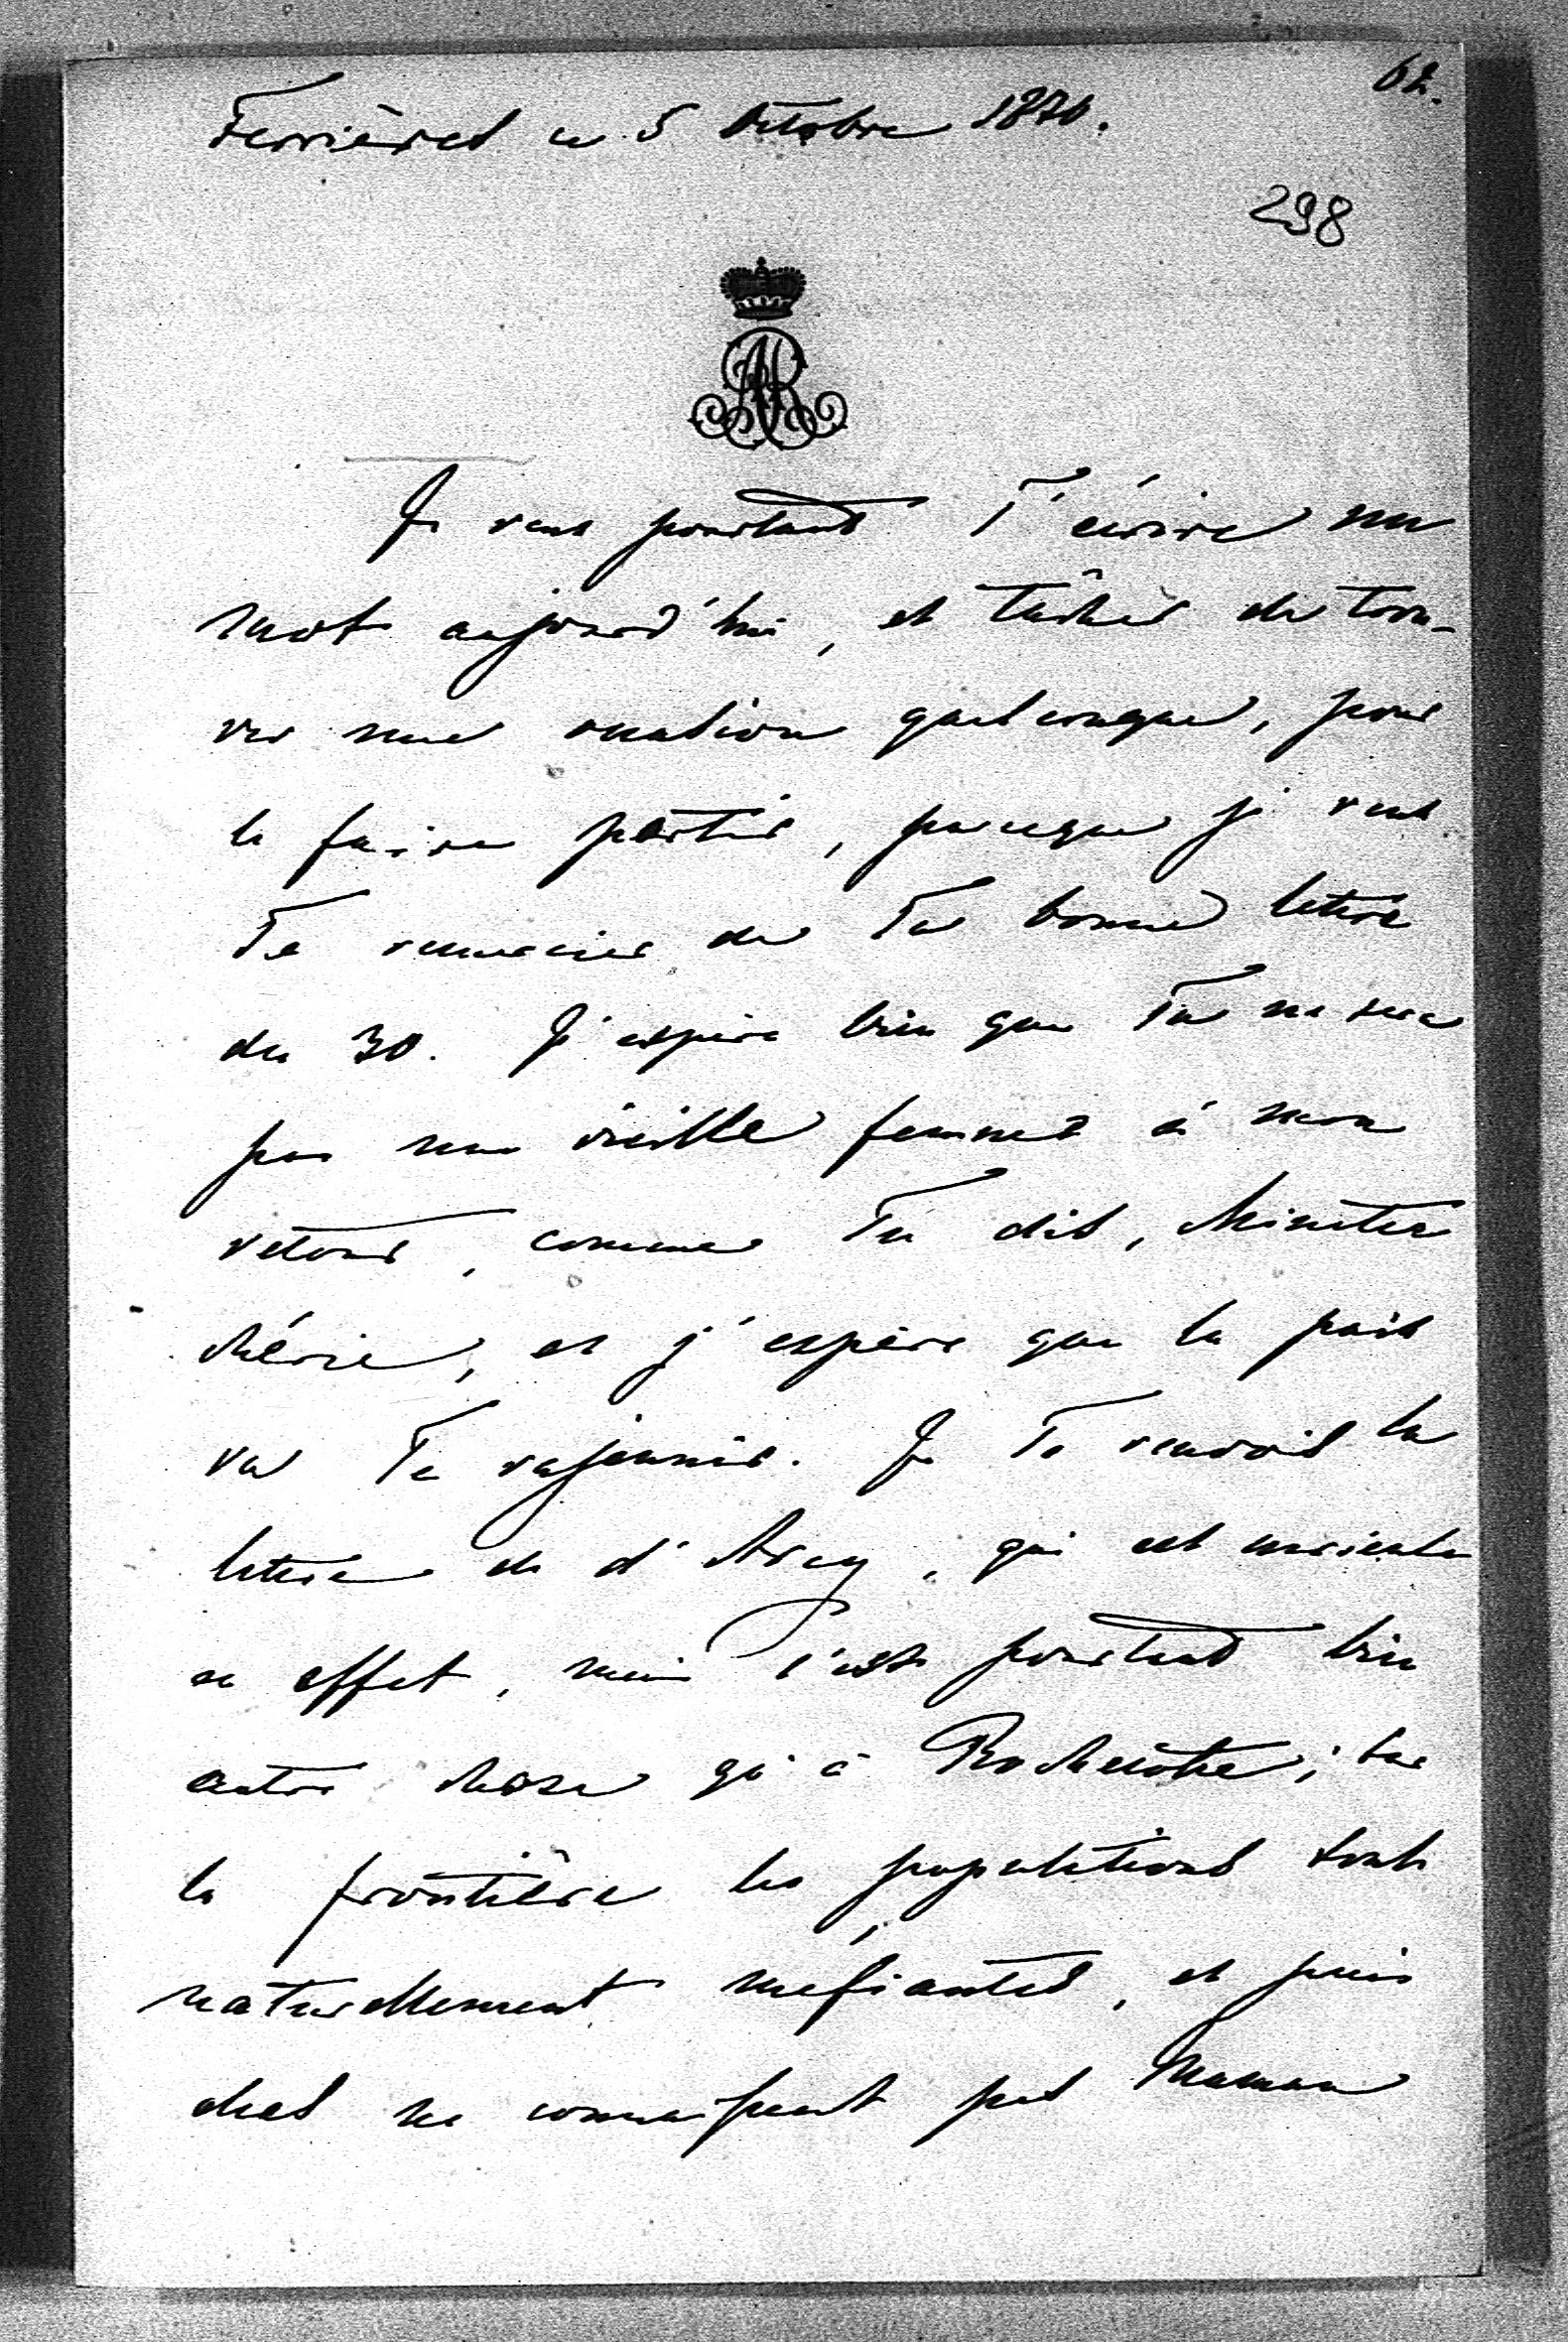 62.
Ferrières ce 5 Octobre 1870.
298
Je veux pourtant T'écrire un
mot aujourd'hui, et tâcher de trou-
ver une occasion quelconque, pour
le faire partir, parceque je veux
Te remercier de Ta bonne lettre
du 30. J'espère bien que Tu ne seras
pas une vieille femme à mon
retour, comme Tu dis,
chérie, et j'espère que la paix
va Te rajeunir. Je Te renvois la
lettre de d'Arcy, qui est
en effet, mais c'est pourtant bien
autre chose qu'à Rochecotte; sur
la frontière les populations sont
naturellement méfiantes, et puis
elles ne connaissent pas Maman